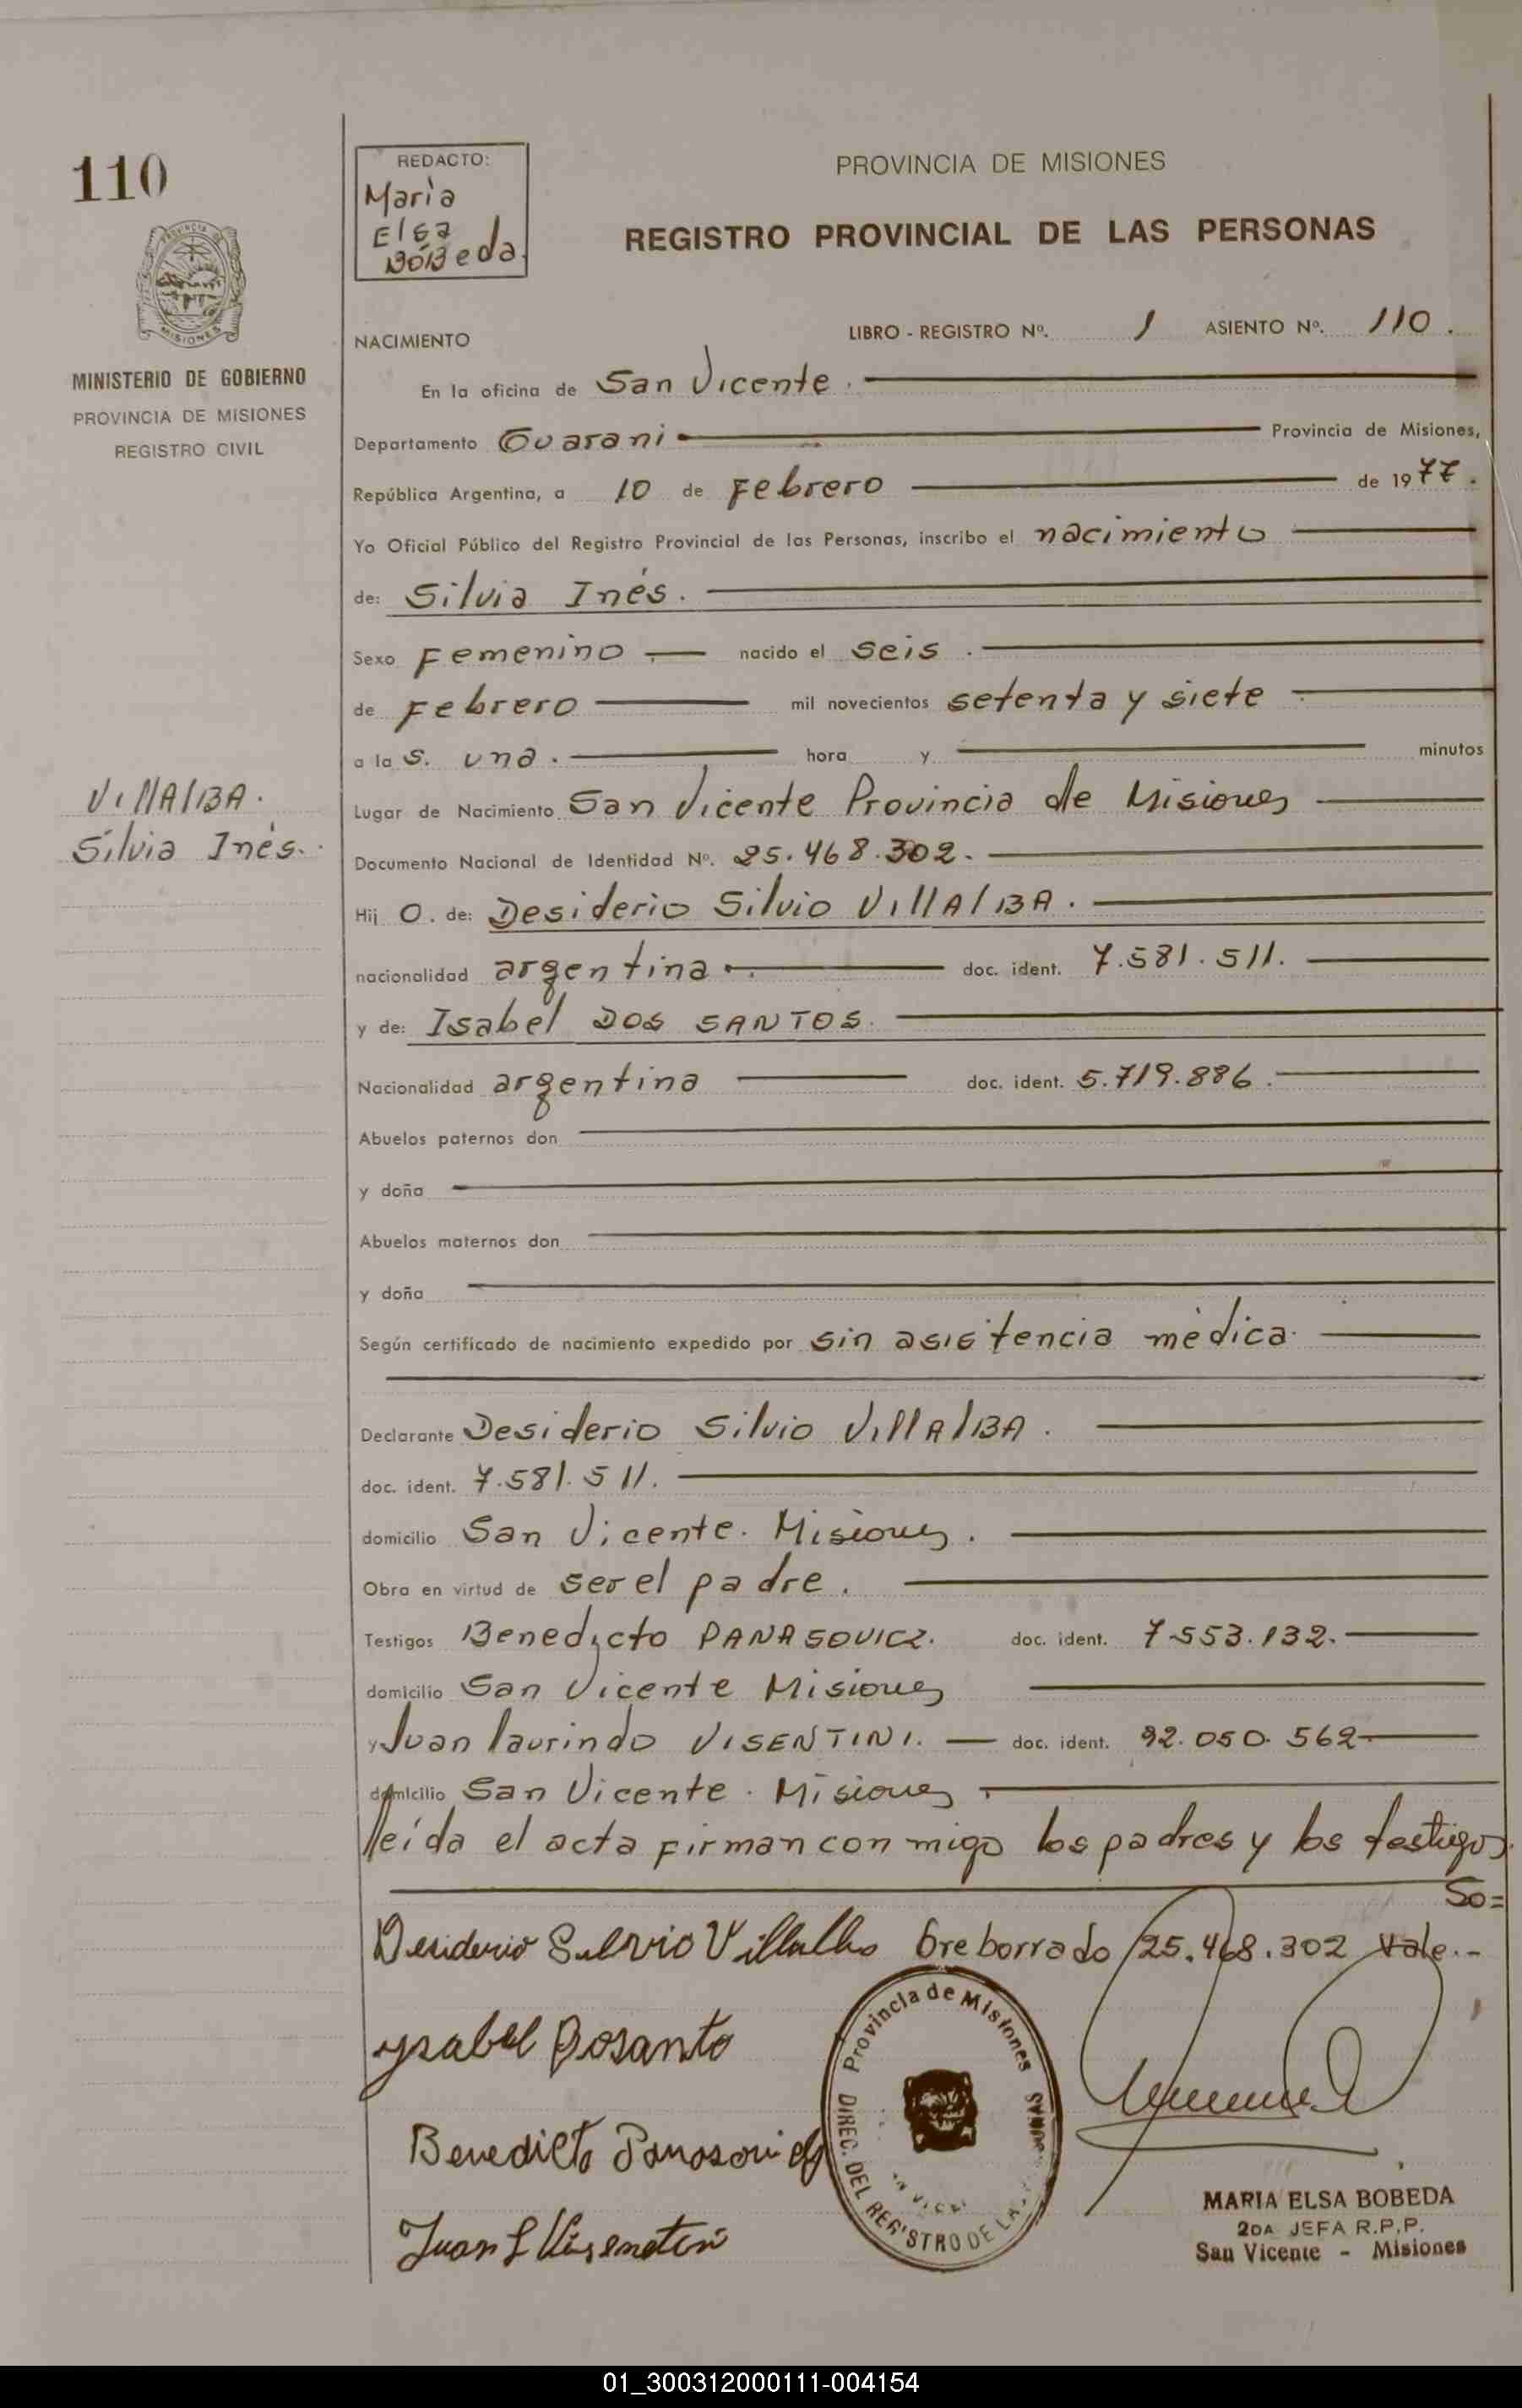 110
REDACTO:
Marìa
Elsa
BóBeda.
PROVINCIA DE MISIONES
REGISTRO PROVINCIAL DE LAS PERSONAS
MINISTERIO DE GOBIERNO
PROVINCIA DE MISIONES
REGISTRO CIVIL
NACIMIENTO LIBRO - REGISTRO Nº. 1 ASIENTO Nº. 110.
En la oficina de San Vicente.
Departamento Guarani Provincia de Misiones,
República Argentina, a 10 de Febrero de 1977.
Yo Oficial Público del Registro Provincial de las Personas, inscribo el nacimiento
de: Silvia Inés.
Sexo Femenino nacido el seis.
de Febrero mil novecientos setenta y siete
a la s. una. hora y minutos
VillAlBA.
Silvia Inès.
Lugar de Nacimiento San Vicente Provincia de Misiones
Documento Nacional de Identidad Nº. 25.468.302.
Hij o. de: Desiderio Silvio VillAlBA.
nacionalidad argentina doc. ident. 7.581.511.
y de: Isabel DOS SANTOS.
Nacionalidad argentina doc. ident. 5.719.886.
Abuelos paternos don
y doña
Abuelos maternos don
y doña
Según certificado de nacimiento expedido por sin asistencia mèdica.
Declarante Desiderio Silvio VillAlBA.
doc. ident. 7.581.511.
domicilio San Vicente. Misiones.
Obra en virtud de ser el padre.
Testigos Benedicto PANASOVICZ. doc. ident. 7.553.132.
domicilio San Vicente Misiones
y Juan laurindo VISENTINI. doc. ident. 92.050.562
domicilio San Vicente. Misiones
leída el acta firman con migo los padres y los testigos.
So=
Desiderio Silvio Villalba bre borrado 25.468.302 vale.-
ysabel Dosanto
Benedicto
Juan L
Provincia de Misiones
DIREC. DEL REGISTRO DE LAS
MARIA ELSA BOBEDA
2DA JEFA R.P.P.
San Vicente - Misiones
01_300312000111-004154